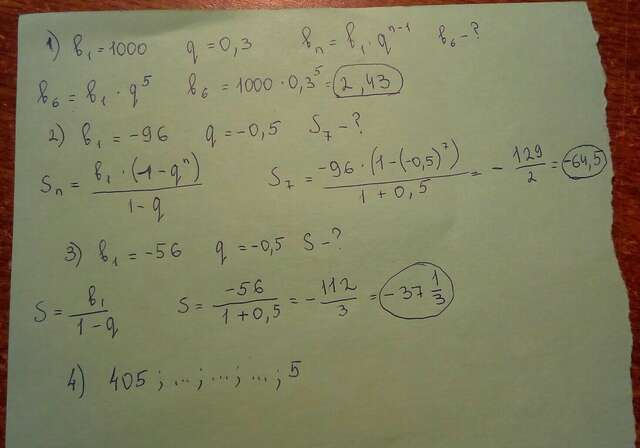 1) b₁ = 1000 q = 0,3 bₙ = b₁ · qⁿ⁻¹ b₆ - ?
b₆ = b₁ · q⁵ b₆ = 1000 · 0,3⁵ = 2,43
2) b₁ = -96 q = -0,5 S₇ - ?
Sₙ = b₁ · (-1 - qⁿ) / 1 - q S₇ = -96 · (1 - (-0,5)⁷) / 1 + 0,5 = - 129/2 = -64,5
3) b₁ = -56 q = -0,5 S - ?
S = b₁ / 1 - q S = -56 / 1 + 0,5 = - 112/3 = -37 1/3
4) 405 ; ... ; ... ; ... ; 5